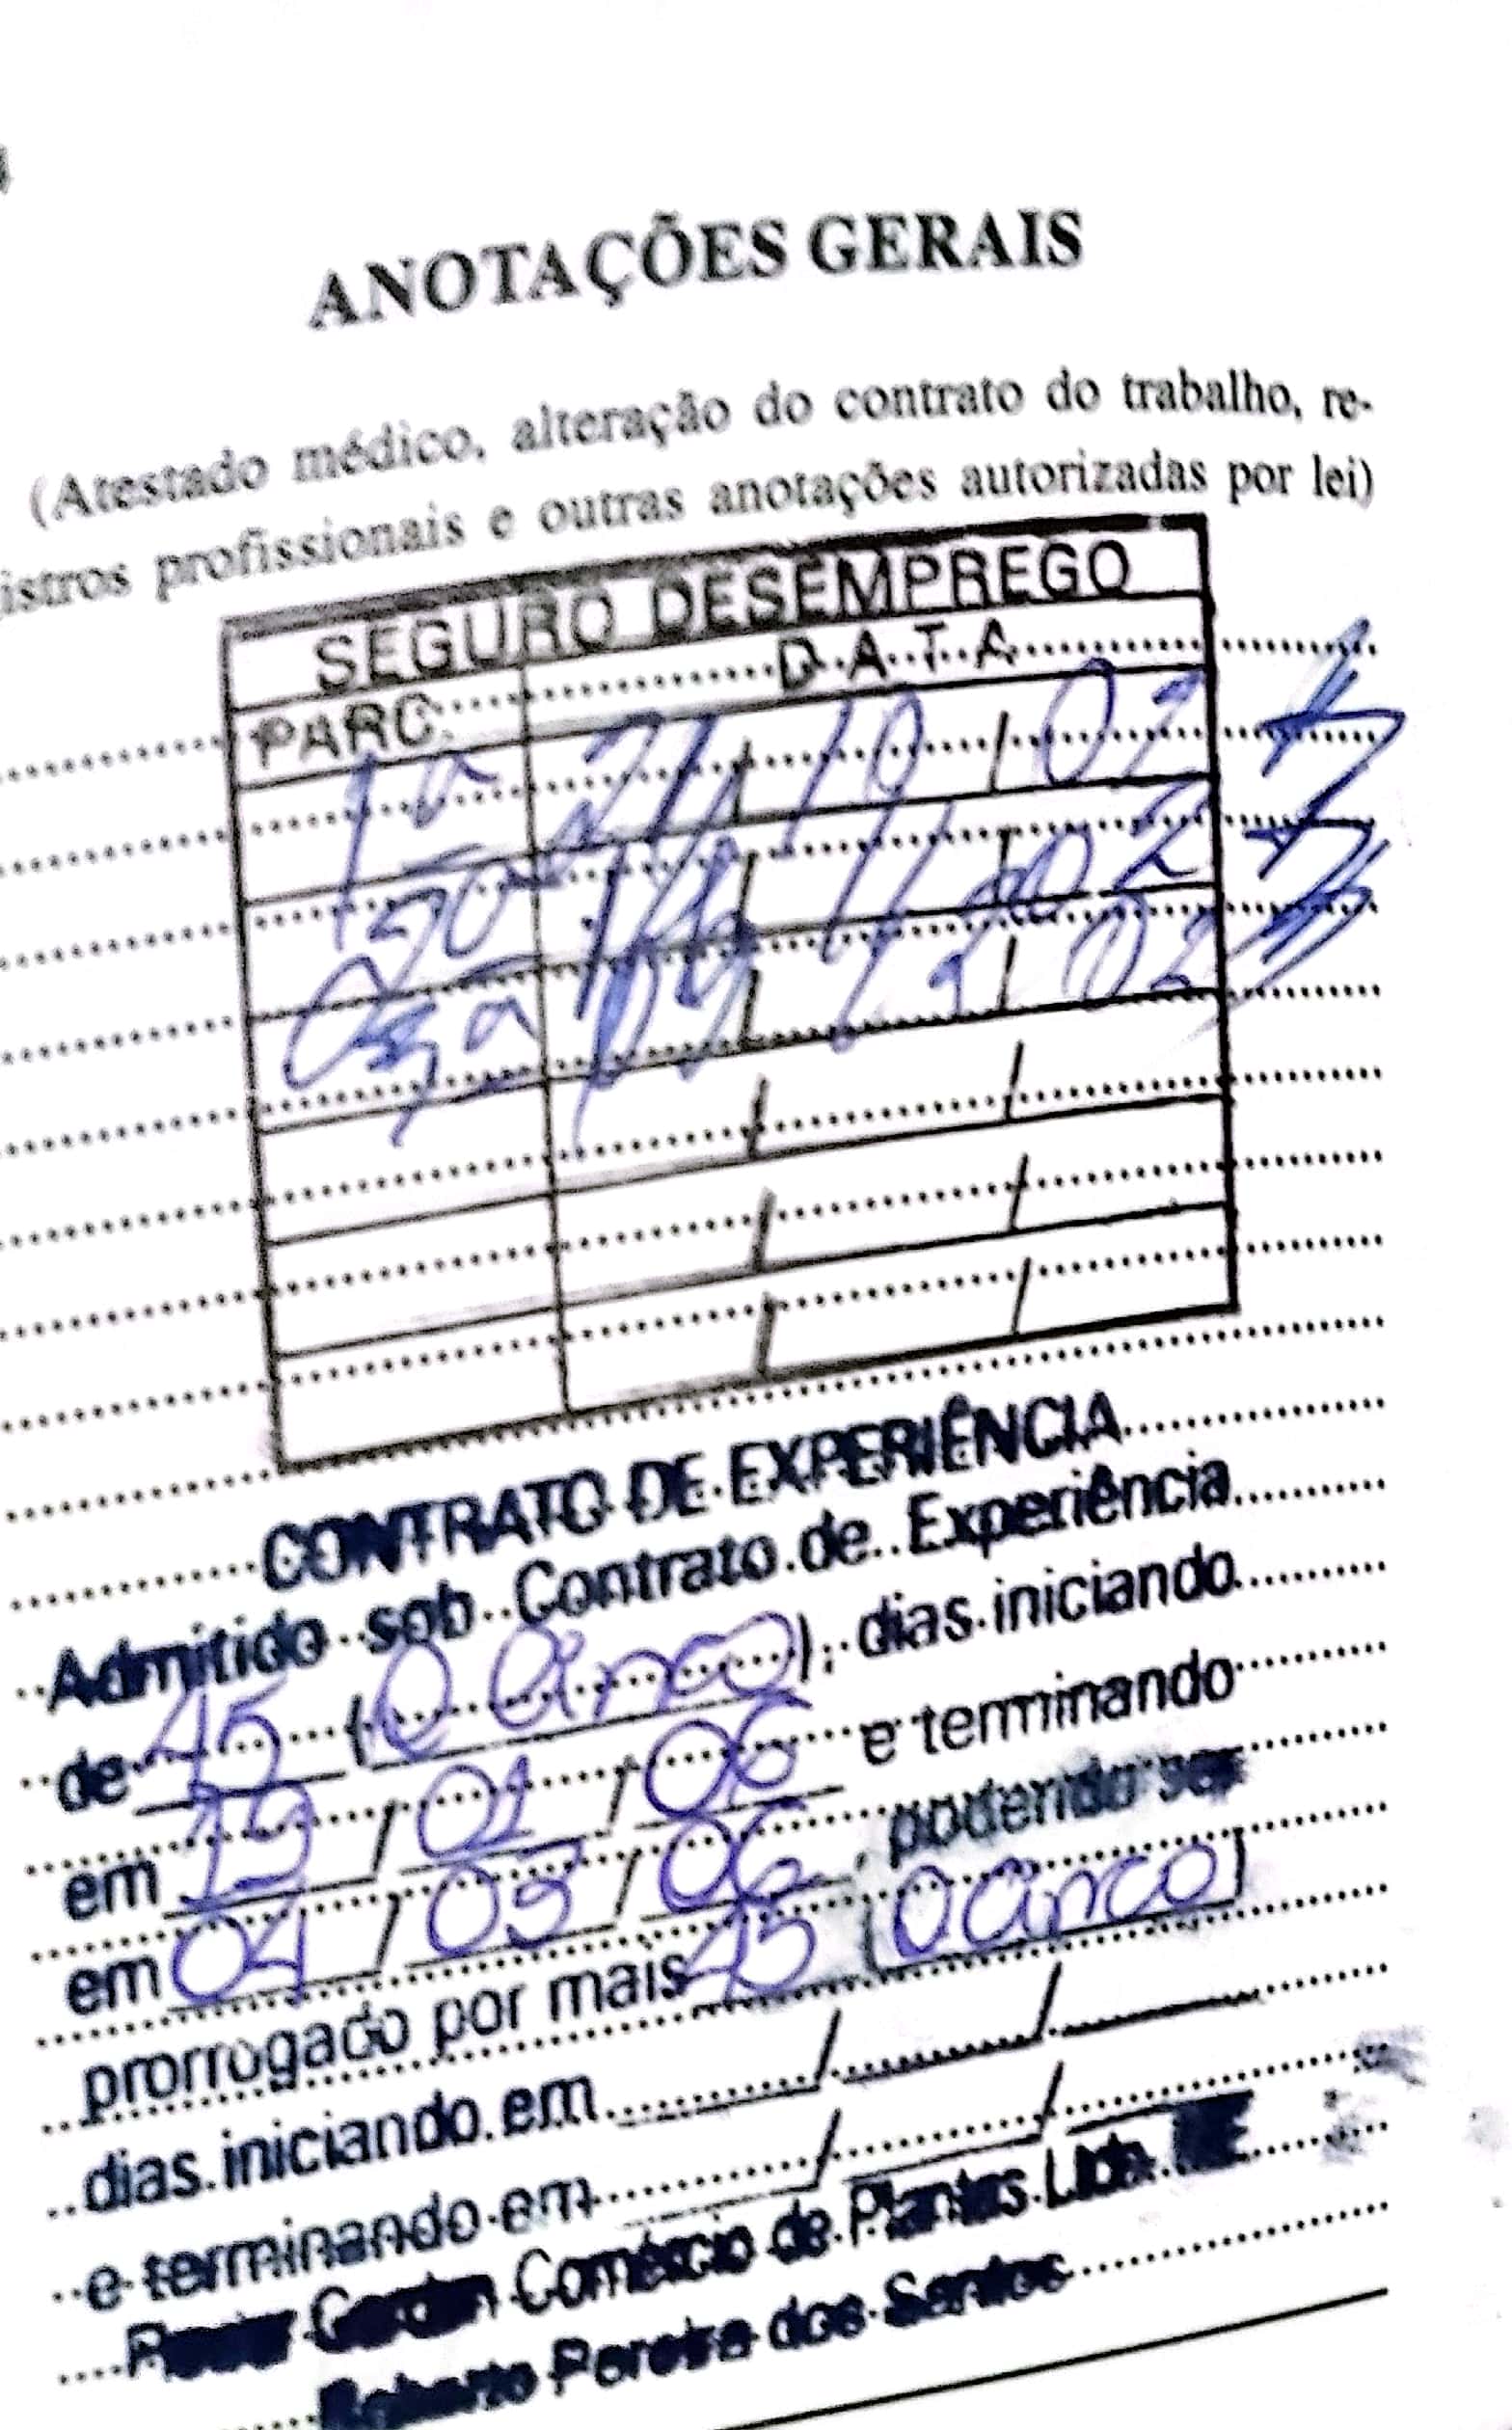 ANOTAÇÕES GERAIS
(Atestado médico, alteração do contrato do trabalho, re-
istros profissionais e outras anotações autorizadas por lei)
SEGURO DESEMPREGO
PARC. DATA
1ª 21/10/02
2ª 11 02
3ª 02
CONTRATO DE EXPERIÊNCIA
Admitido sob Contrato de Experiência
de 45 (e cinco), dias iniciando
em 19/01/06 e terminando
em 04/03/06, podendo ser
prorrogado por mais 45 (e cinco)
dias iniciando em / /
e terminando em / /
Flower Garden Comércio de Plantas Ltda. ME
Roberto Pereira dos Santos